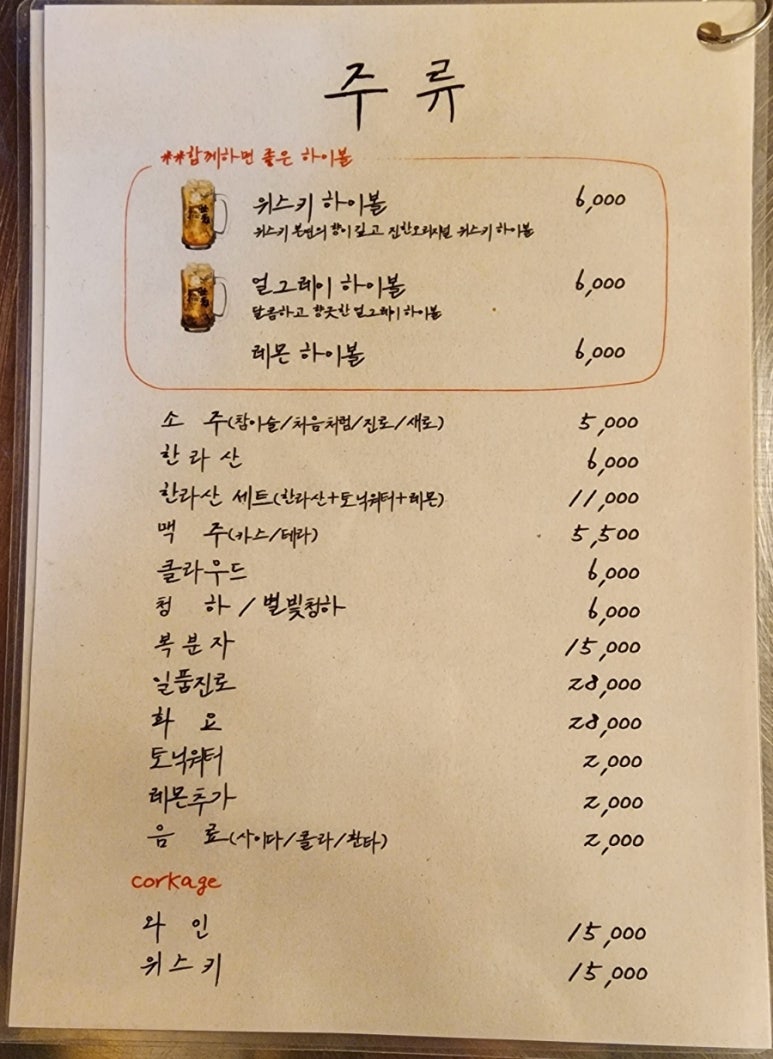 주 류
**함께하면 좋은 하이볼
위스키 하이볼 6,000
위스키 본연의 향이 깊고 진한오리지널 위스키 하이볼
얼그레이 하이볼 6,000
달콤하고 향긋한 얼그레이 하이볼
레몬 하이볼 6,000
소 주(참이슬/처음처럼/진로/새로) 5,000
한라산 6,000
한라산 세트(한라산+토닉워터+레몬) 11,000
맥 주(카스/테라) 5,500
클라우드 6,000
청 하 / 별빛청하 6,000
복분자 15,000
일품진로 28,000
화 요 28,000
토닉워터 2,000
레몬추가 2,000
음 료(사이다/콜라/환타) 2,000
corkage
와 인 15,000
위스키 15,000